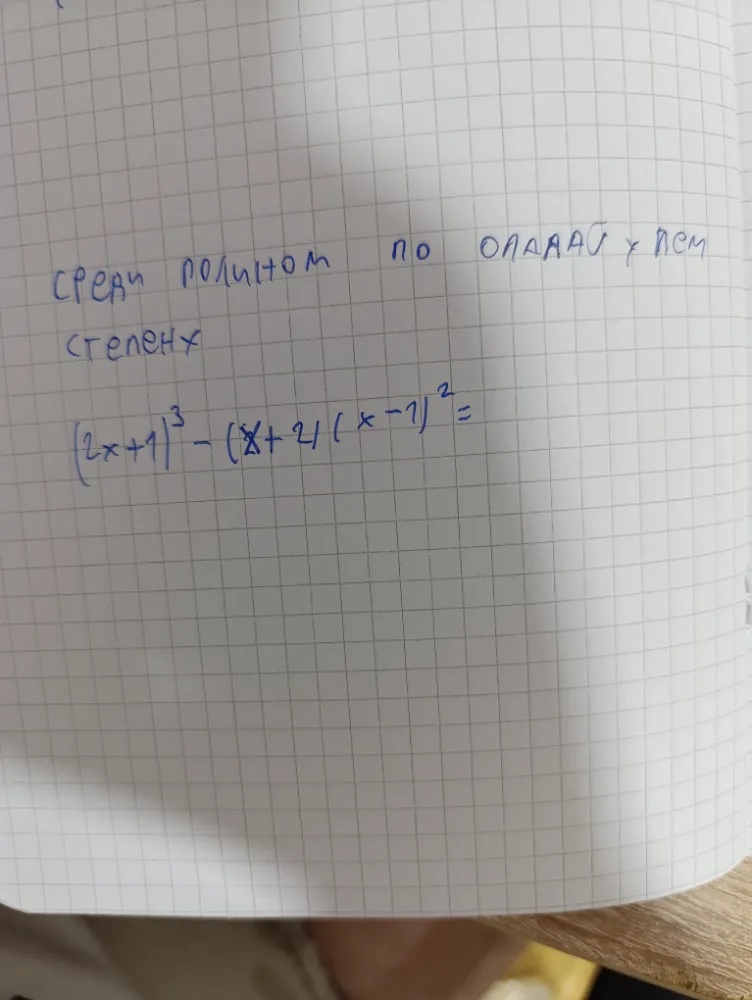 среди полином по опадај х пем
степенх
(2x+1)³-(x+2)(x-1)²=